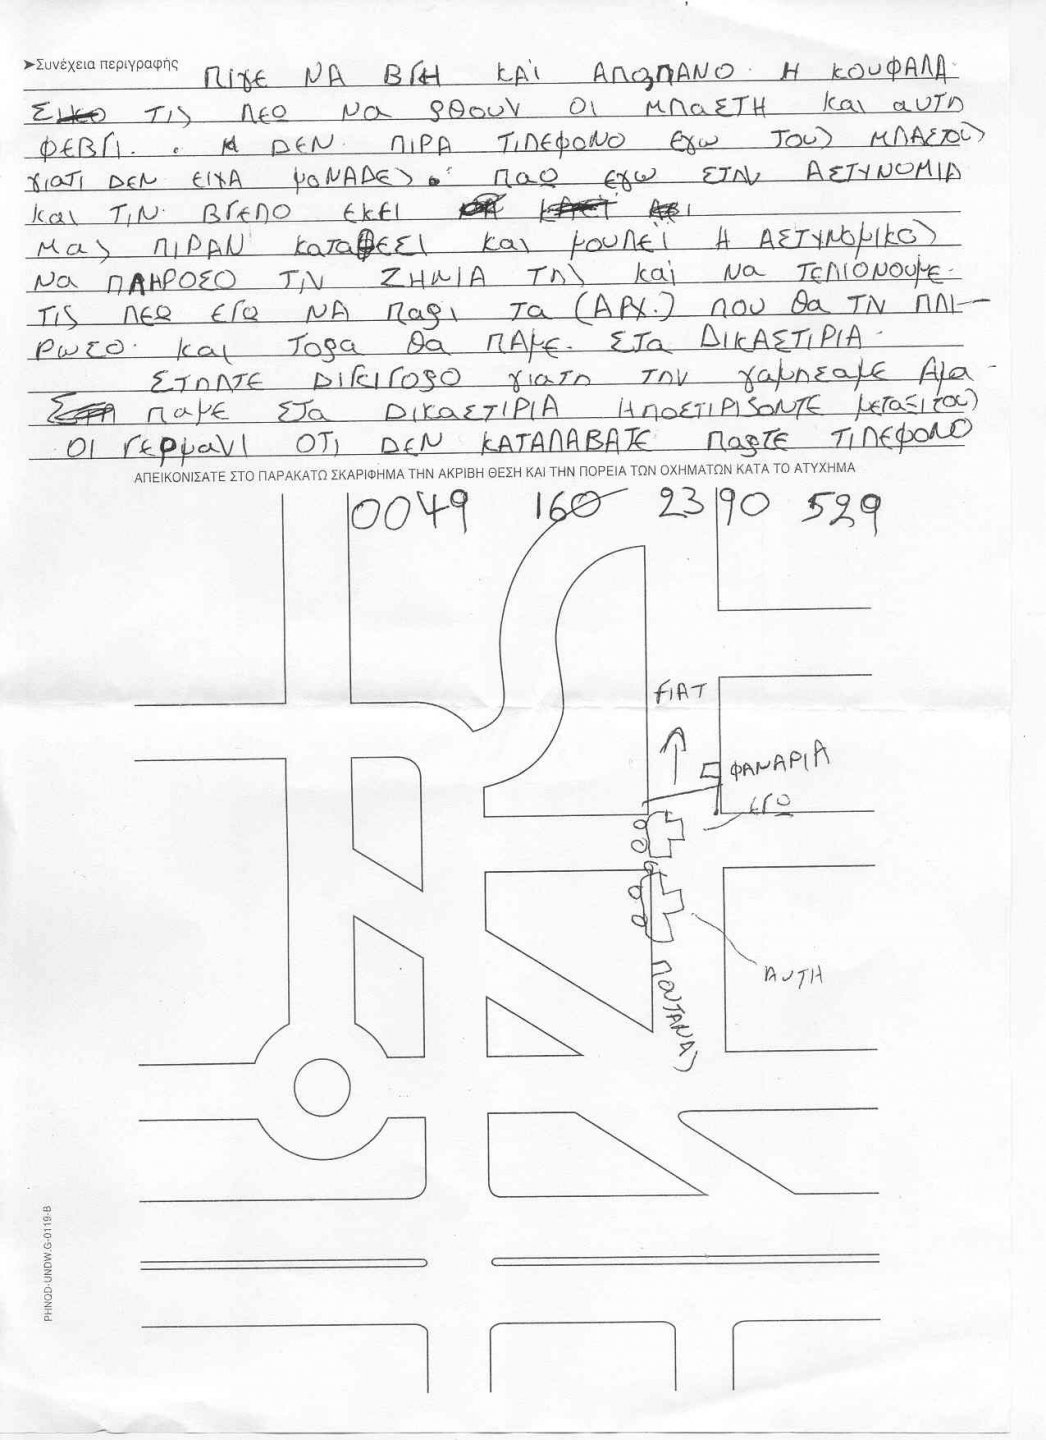 ➤Συνέχεια περιγραφής ΠΙΓΕ ΝΑ ΒΓΗ ΚΑΙ ΑΠΟΠΑΝΟ. Η ΚΟΥΦΑΛΑ
ΤΙς ΛΕΟ ΝΑ ρθουν ΟΙ ΜΠΑΣΤΗ Και αυτη
ΦΕΒΓΙ. . ΔΕΝ. ΠΙΡΑ ΤΙΛΕΦΟΝΟ εγω Τους ΜΠΑΣΤΟυς
γιατι ΔΕΝ ΕΙΧΑ ΜΟΝΑΔΕς. παο εγω ΣΤΙΝ ΑΣΤΥΝΟΜΙΑ
Και ΤΙΝ ΒΓΕΠΟ ΕΚΕΙ
Μας ΠΙΡΑΝ καταΘΕΣΙ Και μουΛΕΪ Η ΑΣΤΥΝΟΜΙΚΟς
Να ΠΛΗΡΟΣΟ ΤΙΝ ΖΗΜΙΑ ΤΙς Και Να ΤΕΛΙΟΝΟυμΕ.
ΤΙς ΛΕΟ ΕΓΟ ΝΑ Παρι Τα (ΑΡΧ.) ΠΟυ θα ΤΙΝ ΠΛΙ-
ΡΩΣΟ. και Τορα θα ΠΑΜΕ. ΣΤα ΔΙΚΑΣΤΙΡΙΑ.
ΣΤΙΛΤΕ ΔΙΚΙΓΟρο γιατι ΤΙΝ γαμησαμε Αμα
παμε ΣΤα ΔΙΚΑΣΤΙΡΙΑ ΗΠΟΣΤΙΡΙΖΟΝΤΕ μεταξιτους
ΟΙ ΓΕΡμανΙ ΟΤΙ ΔΕΝ ΚΑΤΑΛΑΒΑΤΕ ΠαρΤΕ ΤΙΛΕΦΟΝΟ
ΑΠΕΙΚΟΝΙΣΑΤΕ ΣΤΟ ΠΑΡΑΚΑΤΩ ΣΚΑΡΙΦΗΜΑ ΤΗΝ ΑΚΡΙΒΗ ΘΕΣΗ ΚΑΙ ΤΗΝ ΠΟΡΕΙΑ ΤΩΝ ΟΧΗΜΑΤΩΝ ΚΑΤΑ ΤΟ ΑΤΥΧΗΜΑ
0049 160 23 90 529
FIAT
ΦΑΝΑΡΙΑ
ΕΓΟ
ΑΥΤΗ
ΠΟΥΤΑΝΑς
PHNQD-UNDW.G-0119-B